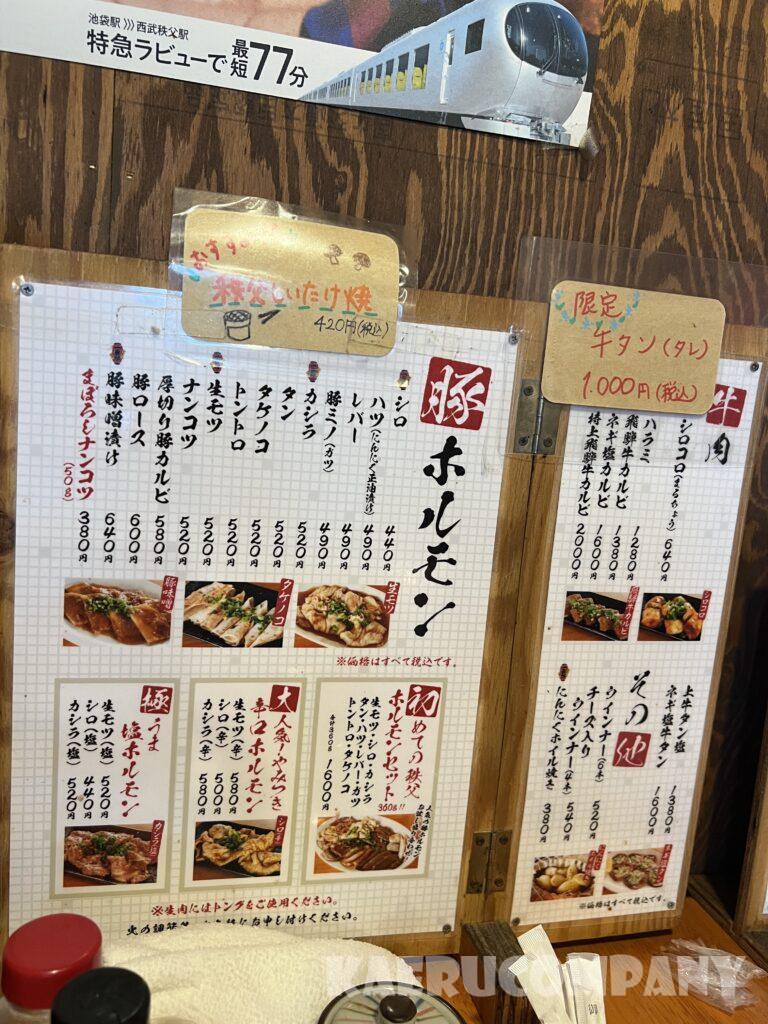 池袋駅 >>> 西武秩父駅
特急ラビューで最短77分
おすすめ
秩父しいたけ焼
420円(税込)
限定
牛タン(タレ)
1.000円(税込)
豚ホルモン
シロ 440円
ハツ(にんにく正油漬け) 490円
レバー 490円
豚ミノ(ガツ) 490円
カシラ 520円
タン 520円
タケノコ 520円
トントロ 520円
生モツ 520円
ナンコツ 520円
厚切り豚カルビ 580円
豚ロース 600円
豚味噌漬け 640円
まぼろしナンコツ(50g) 380円
豚味噌
タケノコ
生モツ
※価格はすべて税込です。
初めての秩父
ホルモンセット 360g!!
生モツ・シロ・カシラ
タン・ハツ・レバー・ガツ
トントロ・タケノコ
合計360g 1600円
大人気!やみつき
辛口ホルモン
生モツ(辛) 580円
シロ(辛) 500円
カシラ(辛) 580円
シロ辛
極うま
塩ホルモン
生モツ(塩) 520円
シロ(塩) 440円
カシラ(塩) 520円
カシラ塩
※生肉にはトングをご使用ください。
牛肉
シロコロ(まるちょう) 640円
ハラミ 1280円
飛騨牛カルビ 1380円
ネギ塩カルビ 1600円
特上飛騨牛カルビ 2000円
シロコロ
上牛タン塩 1380円
ネギ塩牛タン 1600円
その他
ウインナー(6本) 520円
チーズ入り
ウインナー(4本) 540円
にんにくホイル焼き 380円
※価格はすべて税込です。
KAERUCOMPANY